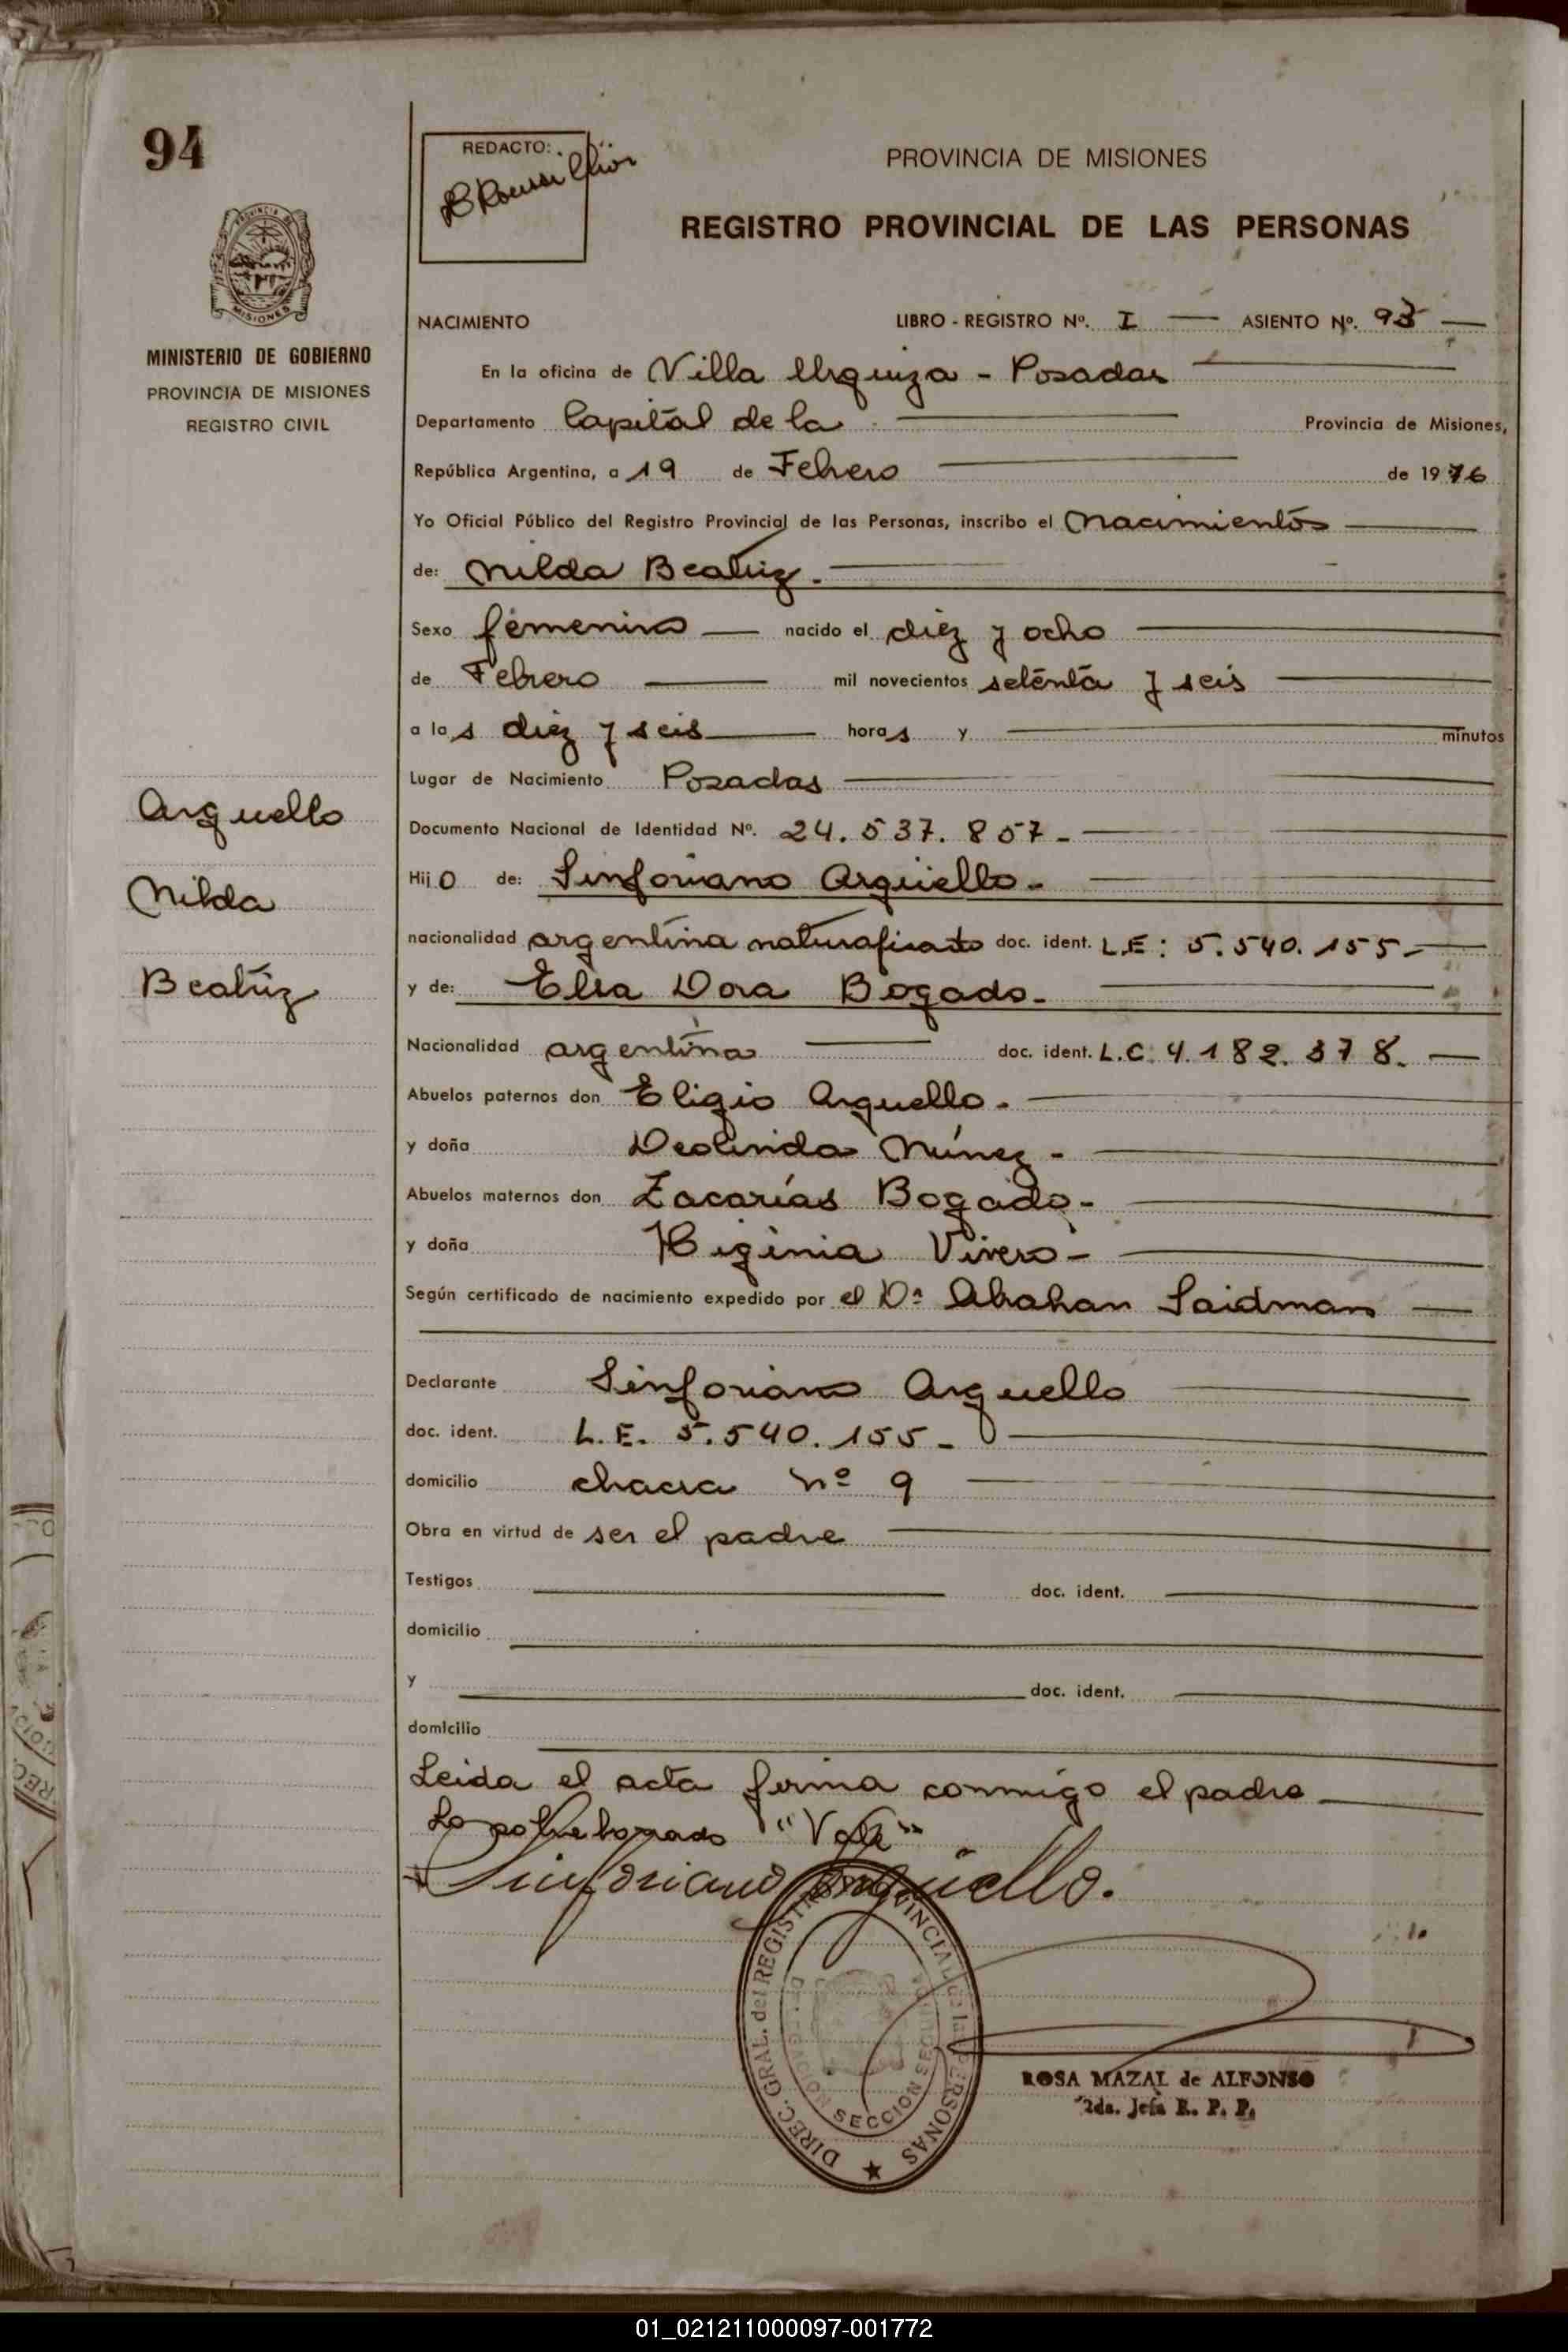 94
REDACTO:
PROVINCIA DE MISIONES
REGISTRO PROVINCIAL DE LAS PERSONAS
MISIONES
MINISTERIO DE GOBIERNO
PROVINCIA DE MISIONES
REGISTRO CIVIL
NACIMIENTO LIBRO - REGISTRO Nº. I ASIENTO Nº. 93
En la oficina de Villa Urquiza - Posadas
Departamento Capital de la Provincia de Misiones,
República Argentina, a 19 de Febrero de 1976
Yo Oficial Público del Registro Provincial de las Personas, inscribo el nacimiento
de: Nilda Beatriz.
Sexo femenino nacido el diez y ocho
de Febrero mil novecientos setenta y seis
a las diez y seis horas y minutos
Lugar de Nacimiento Posadas
Arguello
Documento Nacional de Identidad Nº. 24.537.857-
Hijo de: Sinforiano Argüello-
Nilda
nacionalidad argentina naturalizado doc. ident. L.E: 5.540.155-
Beatriz
y de: Elsa Dora Bogado-
Nacionalidad argentina doc. ident. L.C. 4.182.378.
Abuelos paternos don Eligio Arguello-
y doña Deolinda Núnez-
Abuelos maternos don Zacarías Bogado-
y doña Higinia Vivero-
Según certificado de nacimiento expedido por el Dr Abrahan Saidman
Declarante Sinforiano Arguello
doc. ident. L.E. 5.540.155-
domicilio chacra nº 9
Obra en virtud de ser el padre
Testigos doc. ident.
domicilio
y doc. ident.
domicilio
Leida el acta firma conmigo el padre
Lo sobreborrado "Vale"
Sinforiano Argüello.
DIREC. GRAL. del REGISTRO PROVINCIAL de las PERSONAS
SECCION
ROSA MAZAL de ALFONSO
2da. Jefa R. P. P.
01_021211000097-001772